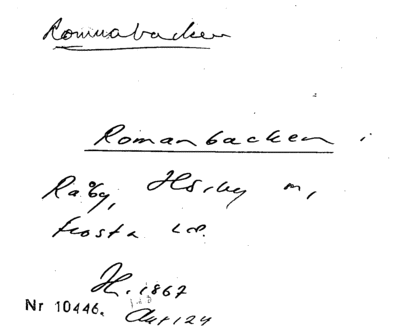 Romnabacken
Romanbacken i
Råby, Hörby sn,
Frosta hd.
H. 1867
Nr 10446.